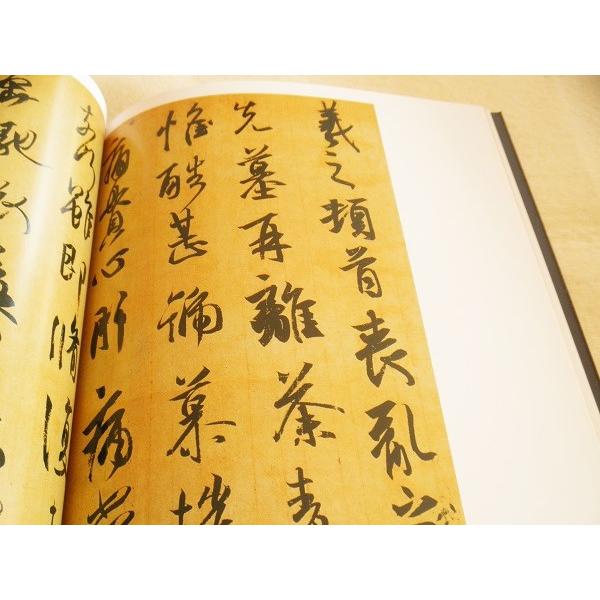 羲之頓首喪亂之
先墓再離荼毒
惟酷甚號慕摧
痛貫心肝痛當
何雖即脩復
馳